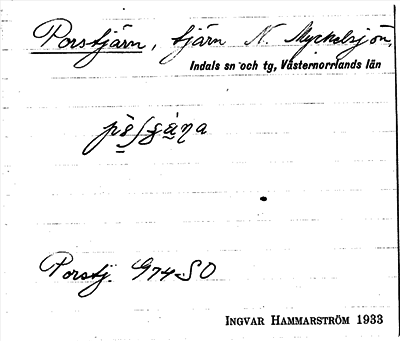 Porstjärn, tjärn N. Myckelsjön,
Indals sn och tg, Västernorrlands län
Porstj. G74 SO
INGVAR HAMMARSTRÖM 1933